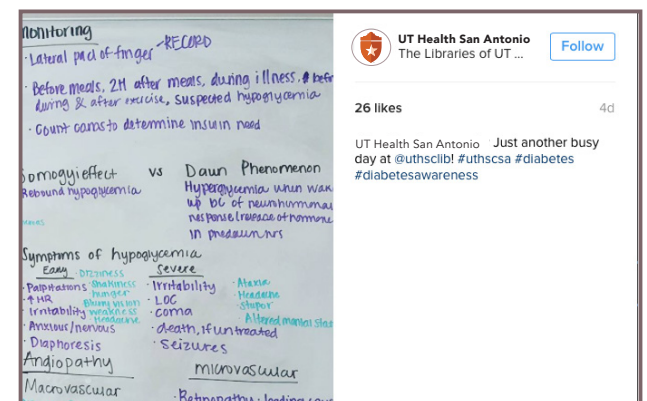 monitoring
· Lateral pad of finger - RECORD
· Before meals, 2H after meals, during illness, befr
during & after exercise, suspected hypoglycemia
· Count carbs to determine insulin need
Somogyi effect vs Dawn Phenomenon
Rebound hypoglycemia
Hyperglycemia when wak
up bc of neurohumonal
response (release of hormone
in predawn hrs
Symptoms of hypoglycemia
Early
· Dizziness
· Palpitations
· Shakiness
hunger
· ↑ HR
Blurry vision
· Irritability
weakness
Headache
· Anxious/nervous
· Diaphoresis
Severe
· Irritability
· LOC
· coma
· death, if untreated
· Seizures
· Ataxia
· Headache
· Stupor
· Altered mental stat
Angiopathy
Macrovascular
microvascular
· Retinopathy: leading
UT Health San Antonio
The Libraries of UT ...
Follow
26 likes
4d
UT Health San Antonio Just another busy
day at @uthsclib! #uthscsa #diabetes
#diabetesawareness